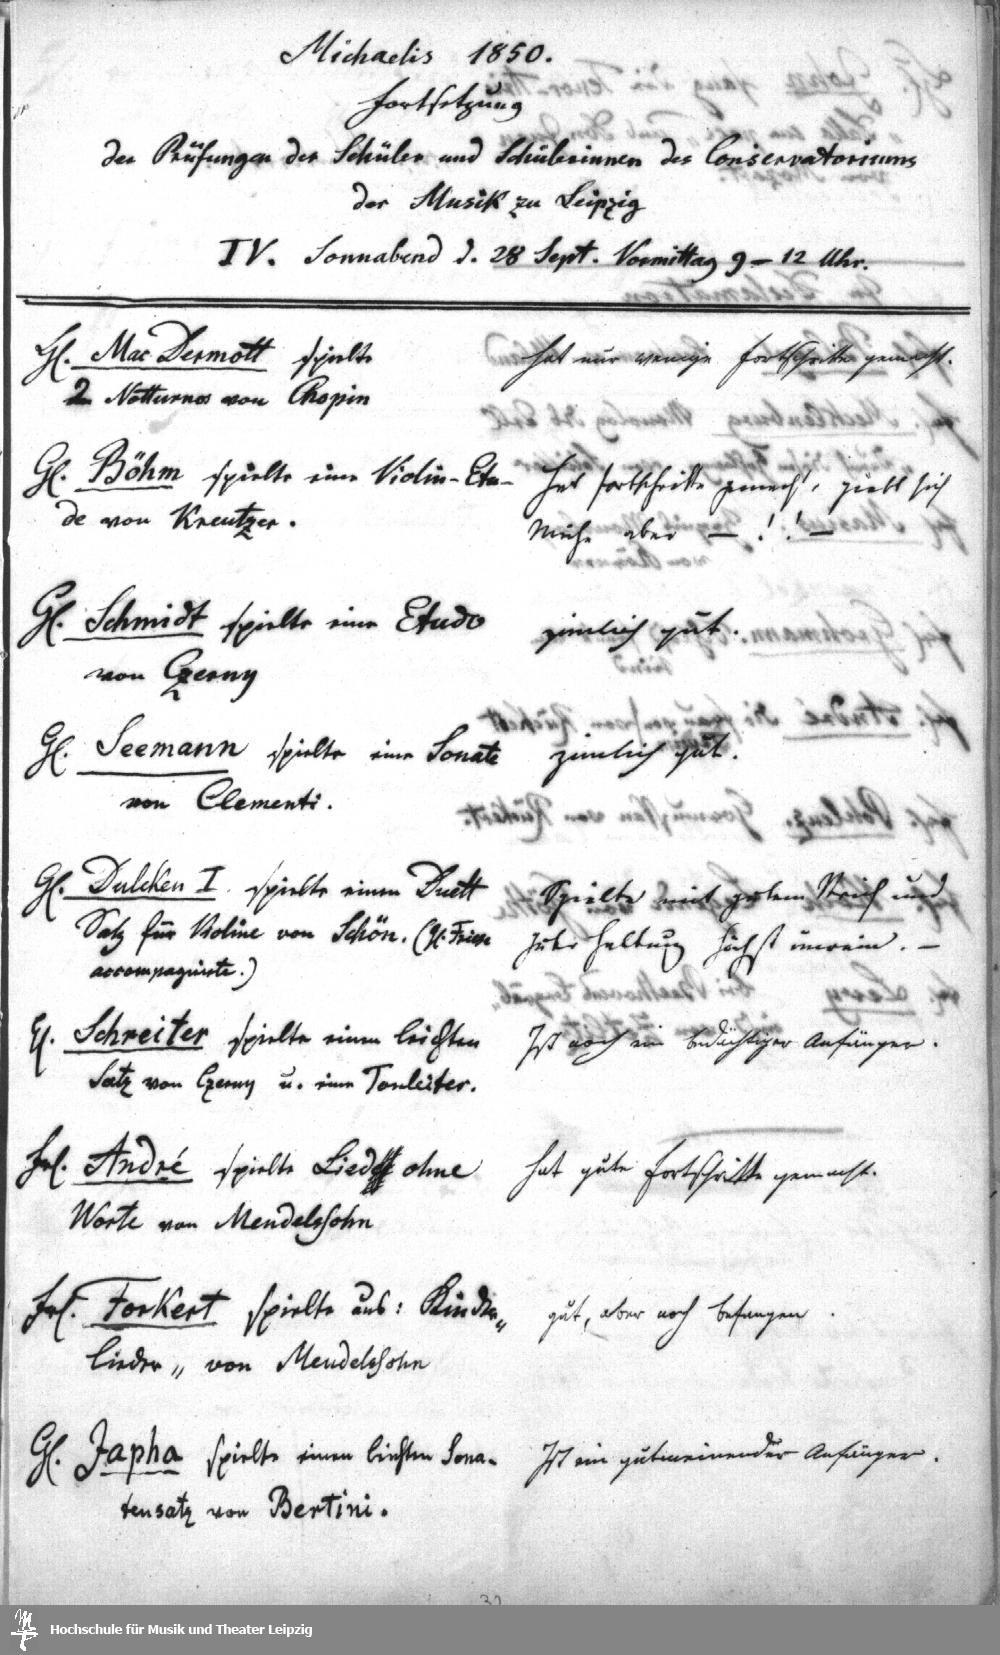 Michaelis 1850.
Fortsetzung
der Prüfungen der Schüler und Schülerinnen des Conservatoriums
der Musik zu Leipzig
IV. Sonnabend d. 28 Sept. Vormittag 9 – 12 Uhr.
H. Mac Dermott spielte
2 Notturnos von Chopin
hat nur wenige Fortschritte gemacht.
H. Böhm spielte eine Violin-Etu-
de von Kreutzer.
Hat Fortschritte gemacht, giebt sich
Mühe aber — ! ! —
H. Schmidt spielte eine Etude
von Czerny
zimlich gut.
H. Seemann spielte eine Sonate
von Clementi.
zimlich gut.
H. Dulcken I. spielte einen Duett
Satz für Violine von Schön. (H. Friese
accompagnirte.)
Spielte mit gutem Strich und
guter Haltung höchst unrein. —
H. Schreiter spielte einen leichten
Satz von Czerny u. eine Tonleiter.
Ist noch ein bedächtiger Anfänger.
Frl. André spielte Lied ohne
Worte von Mendelssohn
hat gute Fortschritte gemacht.
Frl. Forkert spielte aus: Kinder„
lieder„ von Mendelssohn
gut, aber noch befangen.
H. Japha spielte einen leichten Sona-
tensatz von Bertini.
Ist ein gutmeinender Anfänger.
32
Hochschule für Musik und Theater Leipzig